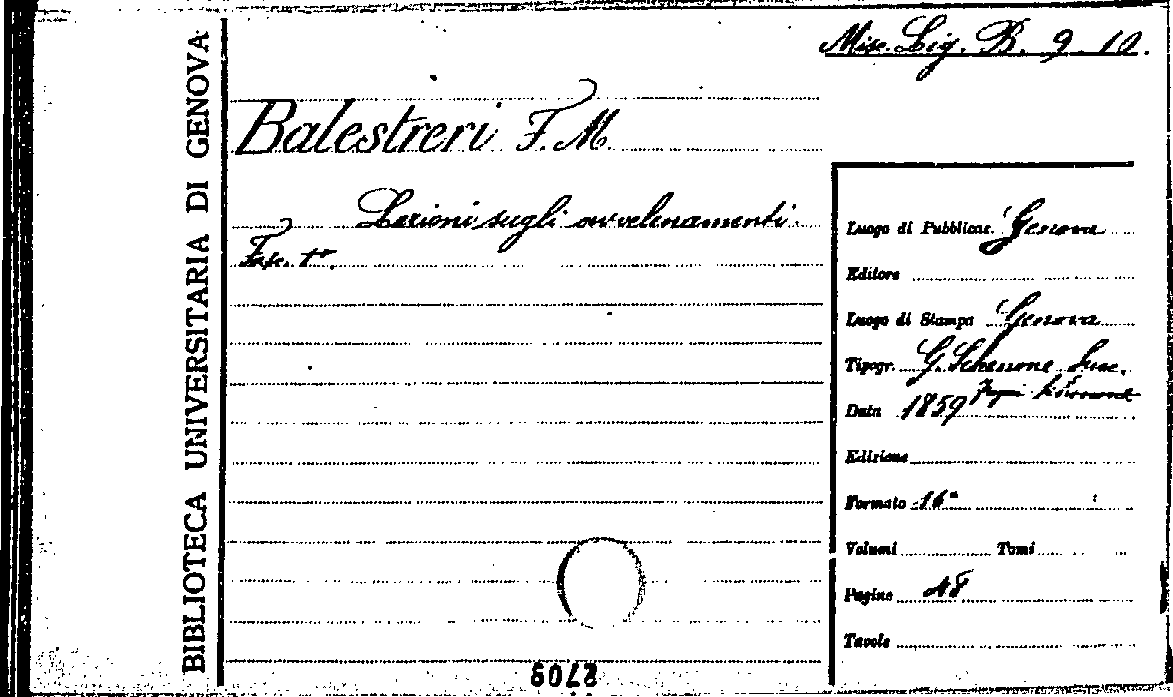 BIBLIOTECA UNIVERSITARIA DI GENOVA
Misc. Lig. B. 9 10.
Balestreri F. M.
Lezioni sugli avvelenamenti.
Fasc. 1º.
Luogo di Pubblicaz. Genova
Editore
Luogo di Stampa Genova
Tipogr. G. Schenone Succ.
Data 1859
Edizione
Formato 16º
Volumi Tomi
Pagine 48
Tavole